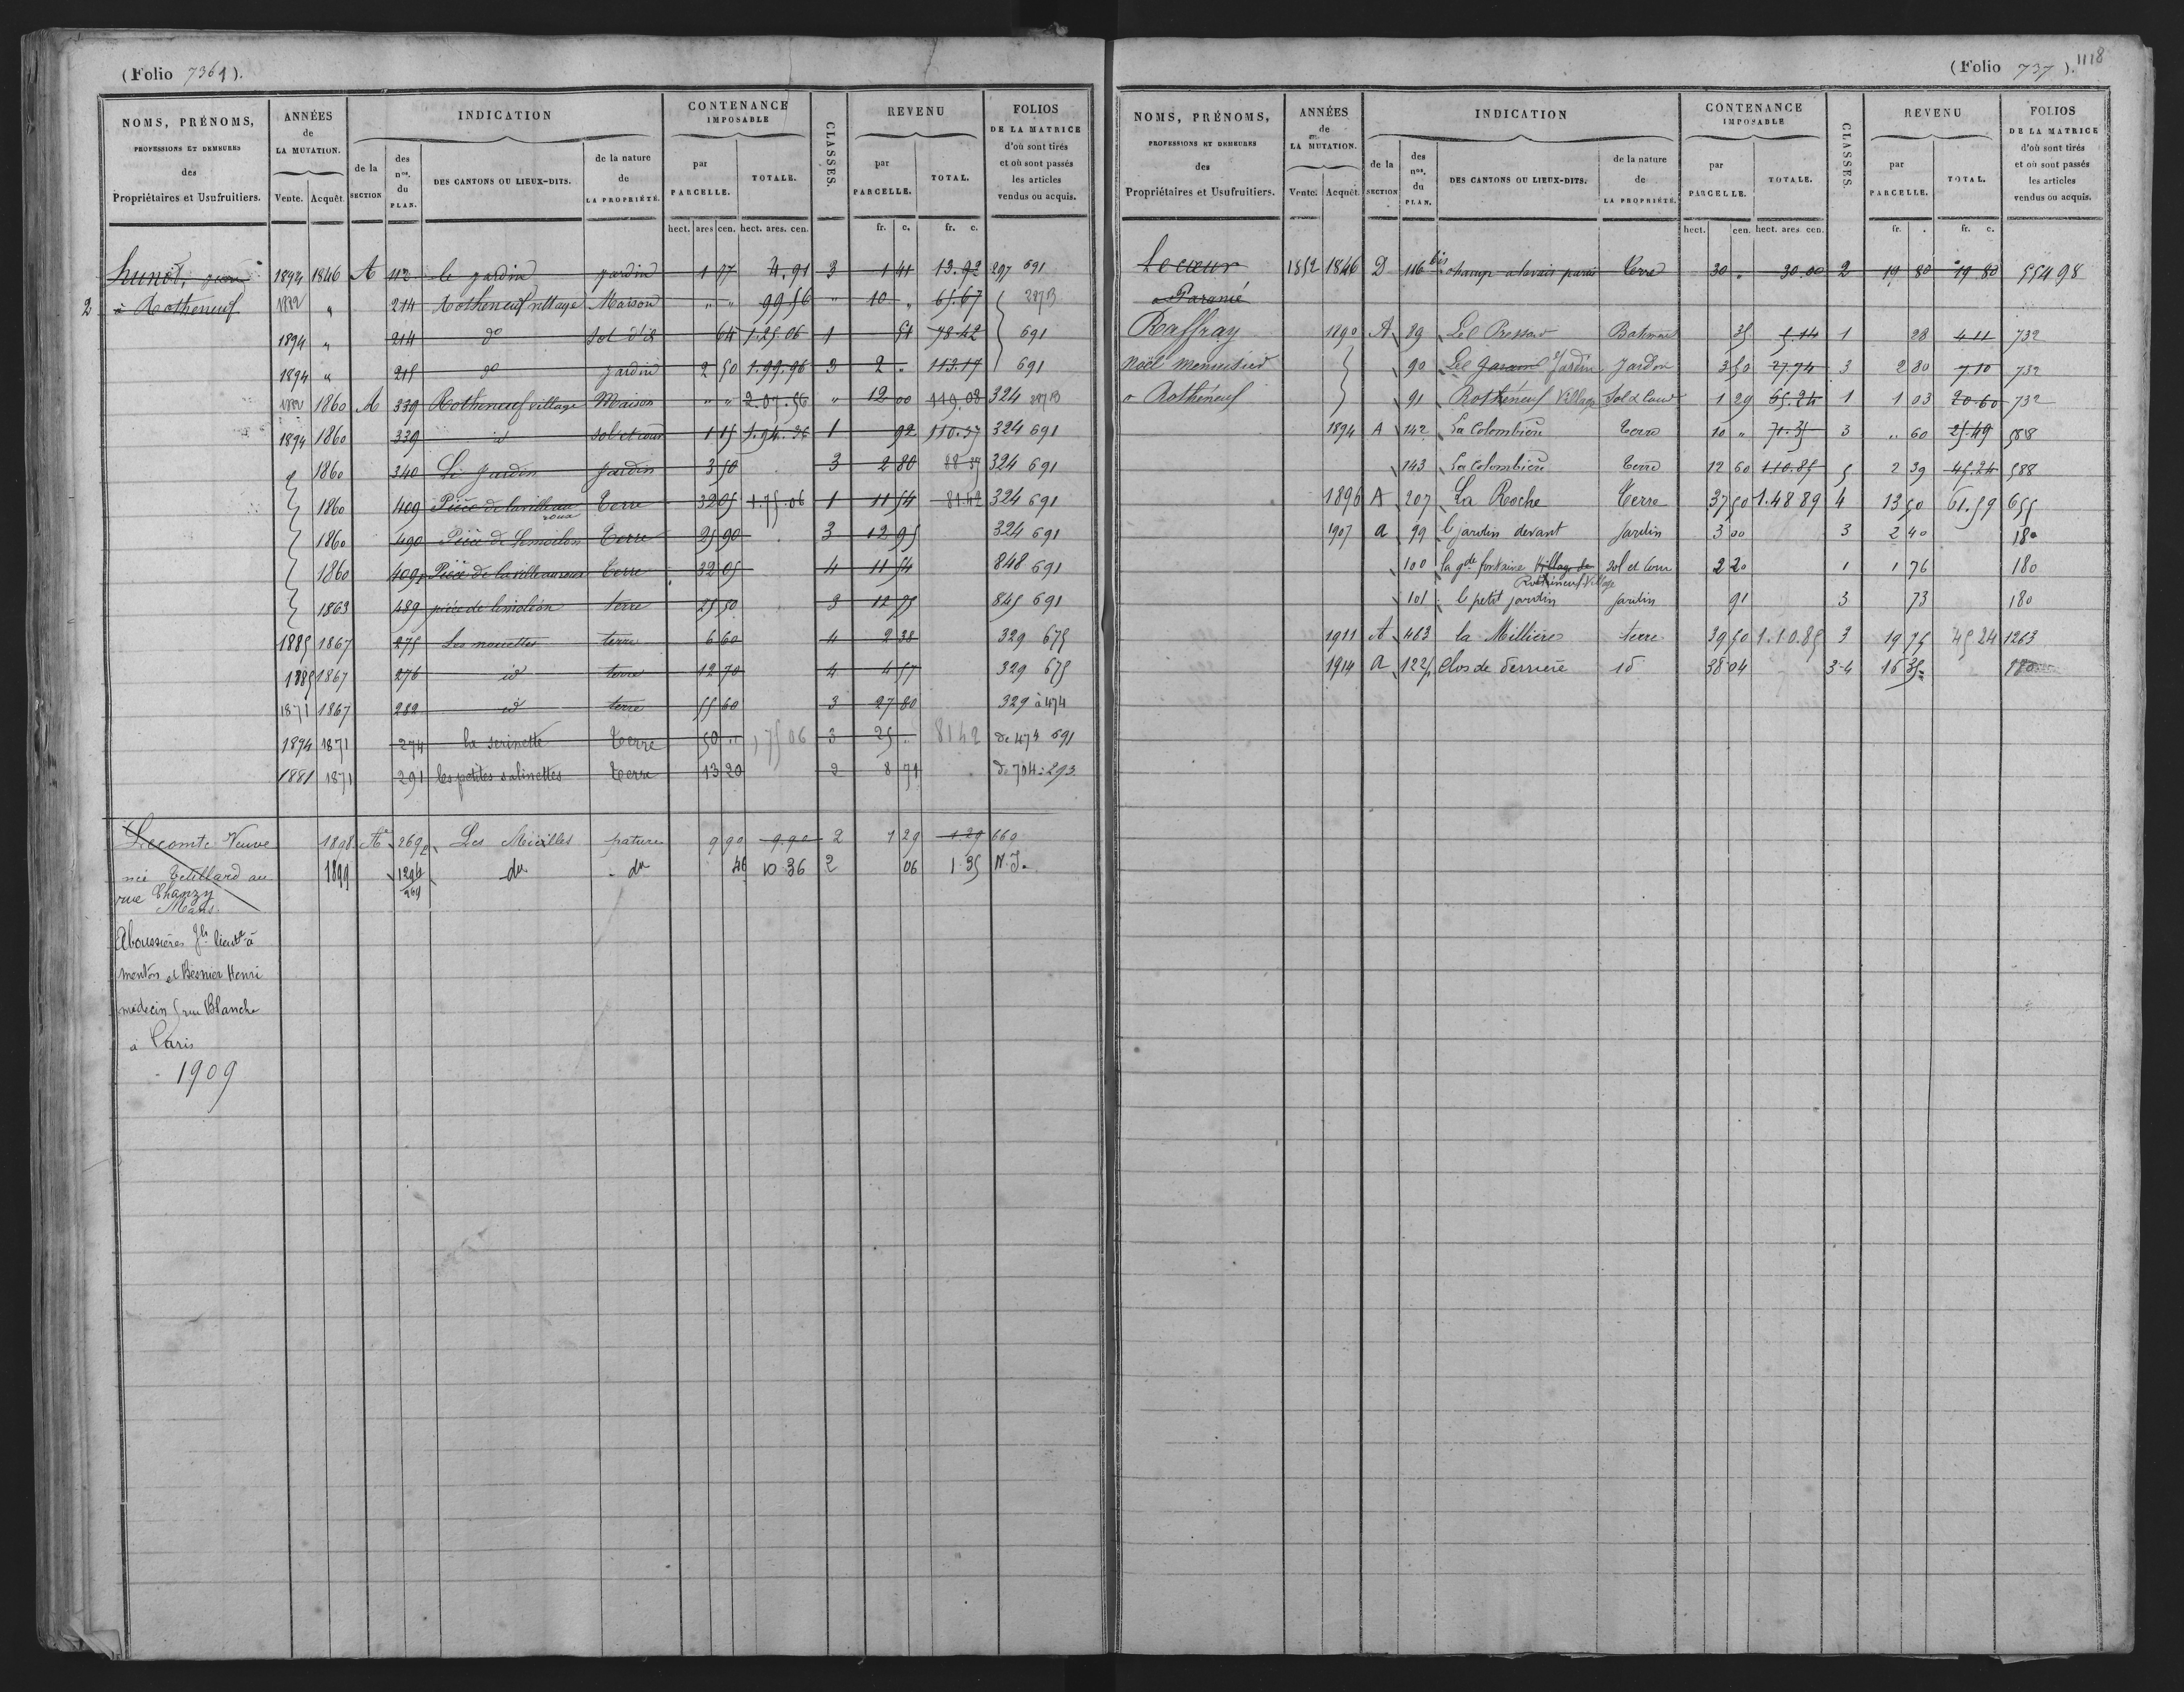 (Folio 7361).
NOMS, PRÉNOMS, PROFESSIONS ET DEMEURES des Propriétaires et Usufruitiers.
ANNÉES de LA MUTATION. Vente. Acquêt.
INDICATION de la SECTION des nos. du PLAN. DES CANTONS OU LIEUX-DITS. de la nature de LA PROPRIÉTÉ.
CONTENANCE IMPOSABLE par PARCELLE. TOTALE.
CLASSES.
REVENU par PARCELLE. TOTAL.
FOLIOS DE LA MATRICE d'où sont tirés et où sont passés les articles vendus ou acquis.
hect. ares cen. hect. ares. cen. fr. c. fr. c.
1894 1846 A 112 le jardin jardin 1 77 4.91 3 1 41 13.92 297 691
2 à Rotheneuf 1882 " 214 Rotheneuf village Maison " " 99 56 " 10 " 65.67 287B
1894 " 214 do Sol d'id 64 1.25.06 1 51 78.42 691
1894 " 215 do jardin 2 50 1.99.96 3 2 . 113.17 691
1882 1860 A 339 Rotheneuf village Maison " " 2.07.56 " 12 00 119.08 324 287B
1894 1860 339 id sol et cour 1 15 1.94.36 1 92 110.37 324 691
1860 340 Le Jardin jardin 3 50 3 2 80 88 37 324 691
1860 409 Pièce de la villeauroux Terre 32 05 1.75.06 1 11 54 81.42 324 691
1860 490 Pièce de Limoelon Terre 25 90 3 12 95 324 691
1860 409p Pièce de la villeauroux terre 32 05 4 11 54 848 691
1863 489 pièce de limoléon terre 25 50 3 12 75 845 691
1885 1867 275 Les nouettes terre 6 60 4 2 38 329 675
1885 1867 276 id terre 12 70 4 4 57 329 675
1871 1867 282 id terre 55 60 3 27 80 329 à 474
1894 1871 274 la serinette Terre 50 " 1 75 06 3 25 " 81 42 de 474 691
1881 1871 291 les petites salinettes Terre 13 20 2 8 71 de 704 : 293
Lecomte Veuve 1898 A 269 Les Mieilles pature 9 90 9.90 2 1 29 1.29 660
née Teillard au 1899 1296/269 du du 46 10 36 2 06 1.35 N.I.
rue Chanzy
Mans.
Aboussières lieut à
menton et Besnier Henri
médecin 5 rue Blanche
à Paris
1909
(Folio 737). 1118
NOMS, PRÉNOMS, PROFESSIONS ET DEMEURES des Propriétaires et Usufruitiers.
ANNÉES de LA MUTATION. Vente. Acquêt.
INDICATION de la SECTION des nos. du PLAN. DES CANTONS OU LIEUX-DITS. de la nature de LA PROPRIÉTÉ.
CONTENANCE IMPOSABLE par PARCELLE. TOTALE.
CLASSES.
REVENU par PARCELLE. TOTAL.
FOLIOS DE LA MATRICE d'où sont tirés et où sont passés les articles vendus ou acquis.
hect. cen. hect. ares. cen. fr. . fr. c.
Lecœur 1852 1846 D 116 bis terre 30 " 30.00 2 19 80 19 80 554 98
à Paramé
Raffray 1890 A 89 Le Pressoir Batiment 35 1 28 4 11 732
Noël menuisier 90 Le Jardin Jardin 3 50 27.74 3 2 80 7 10 732
à Rothéneuf 91 Rothéneuf Village Sol & Cour 1 29 65.24 1 1 03 20 60 732
1894 A 142 La Colombière terre 10 " 71.35 3 " 60 25.49 588
143 La Colombière Terre 12 60 1.10.85 5 2 39 45.24 588
1896 A 207 La Roche Terre 37 50 1.48 89 4 13 50 61.59 655
1907 a 99 le jardin devant jardin 3 00 3 2 40 180
100 la gde fontaine Village de Rothéneuf Village sol et Cour 2 20 1 1 76 180
101 le petit jardin jardin 91 3 73 180
1911 A 463 la Millière terre 39 50 1.10.85 3 19 75 45 24 1263
1914 a 122p Clos de derrière id 38 04 3-4 16 35 180